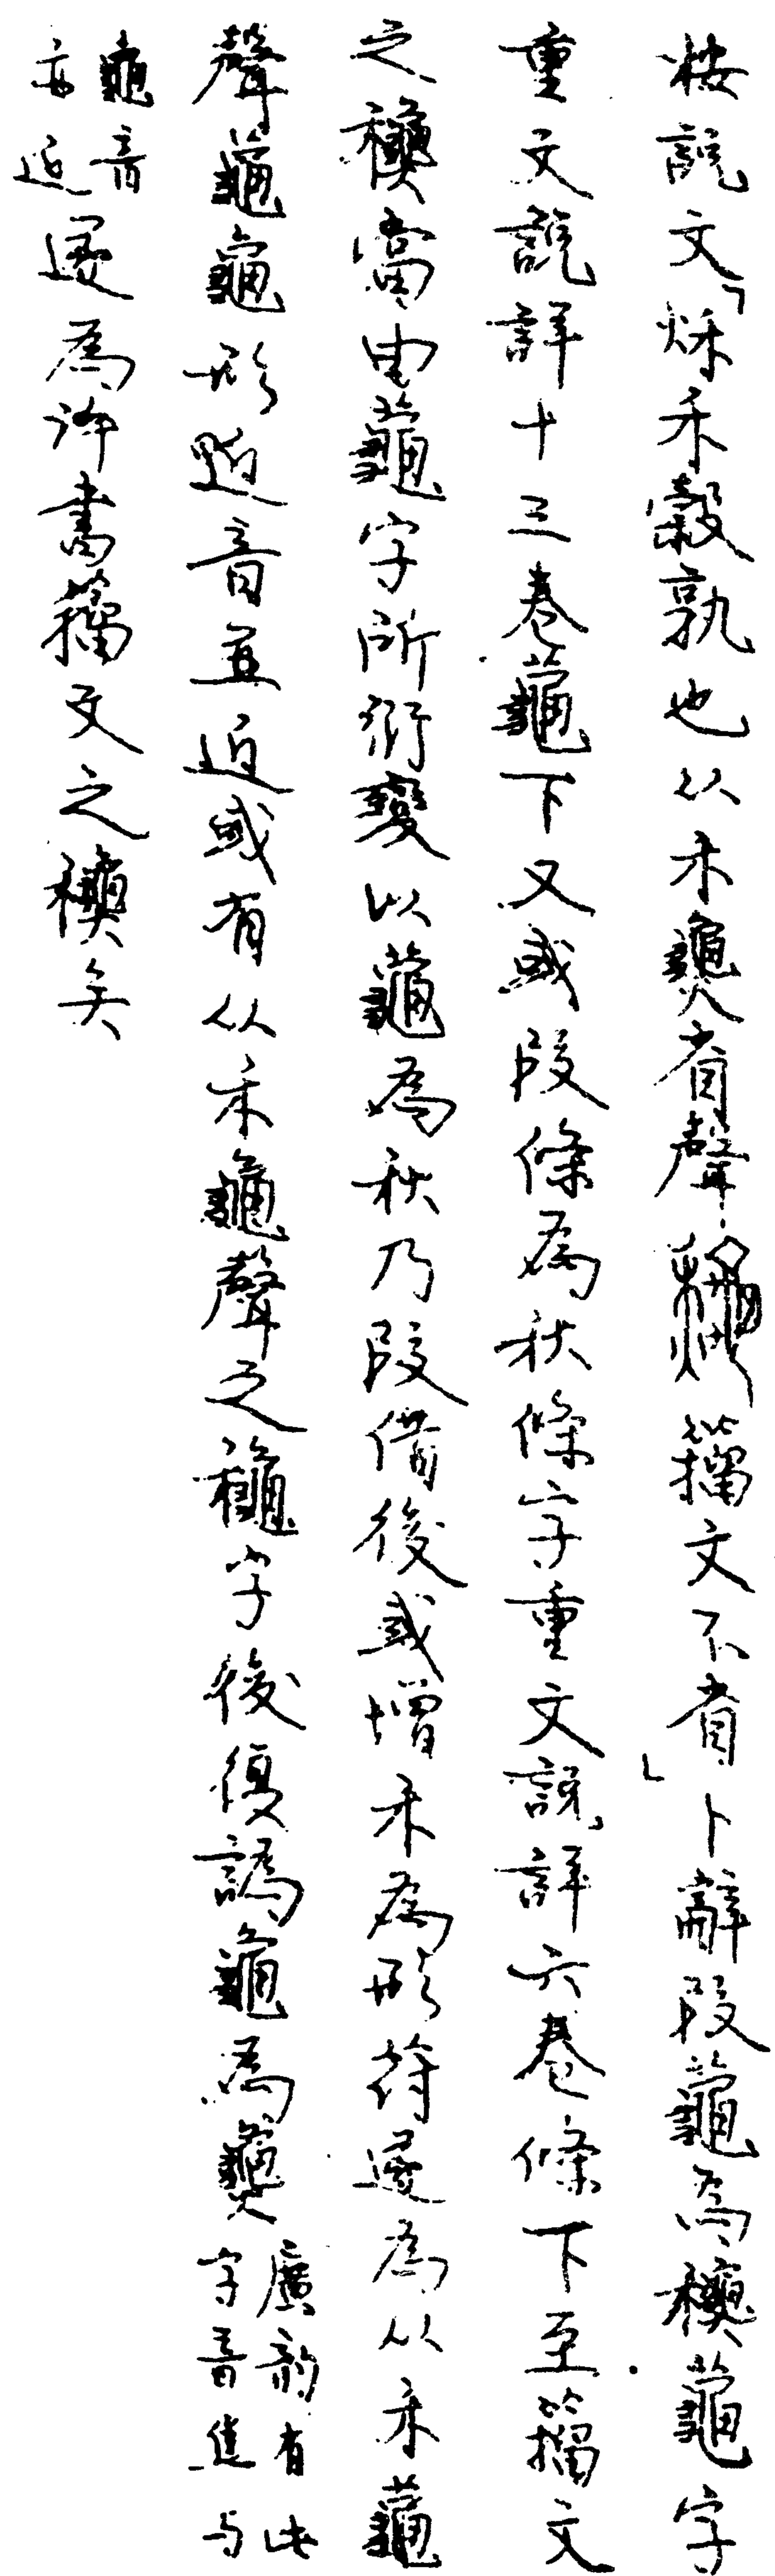 按說文「秌禾穀孰也从禾𤒅省聲𥤛籀文不省」卜辭叚為𥤛字
重文說詳十三卷下又或叚條為秋條字重文說詳六卷條下至籀文
之𥤛當由字所衍變以為秋乃叚借後或增禾為形符遂為从禾
聲龜形近音並近或有从禾龜聲之龝字後復譌龜為𤒅廣韵有此字音焦与
龜音亦近遂為許書籀文之𥤛矣